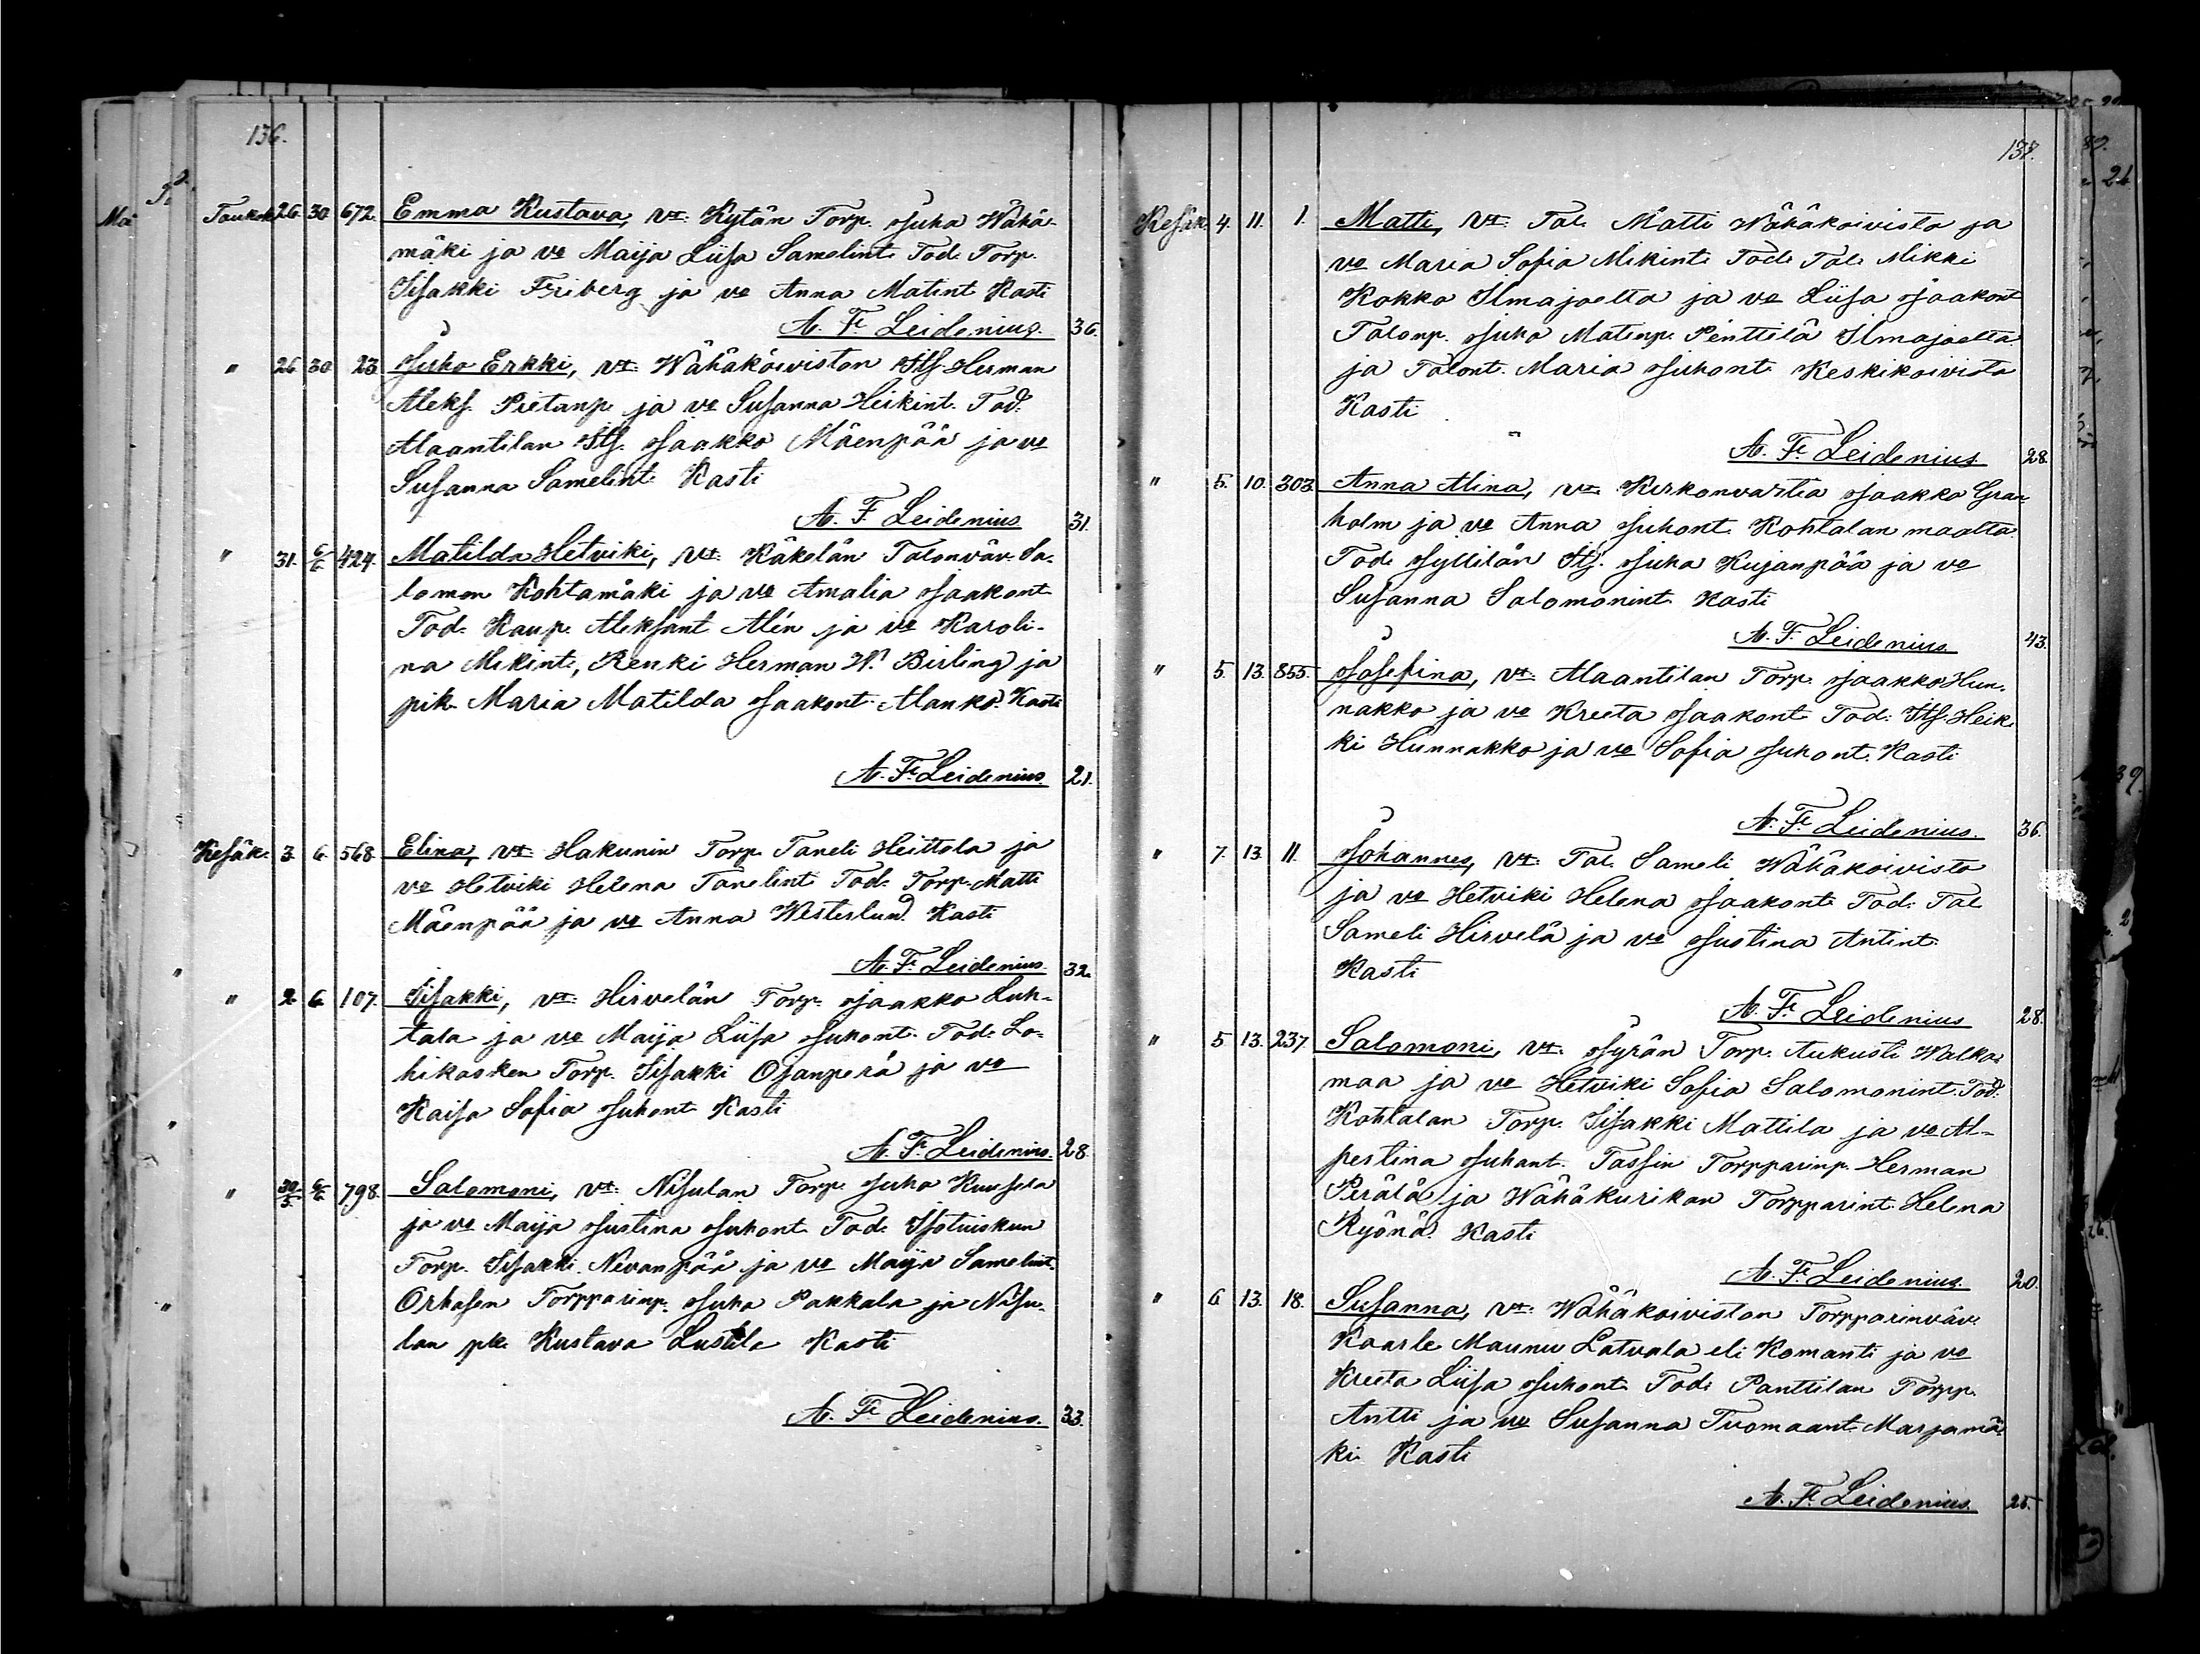 136.
Toukok. 26. 30. 672. Emma Kustava, vt: Kytän Torp. Juha Wähä-
mäki ja vo Maija Liisa Samelint. Tod. Torp.
Iisakki Friberg ja vo Anna Matint. Kasti
A. F. Leidenius. 36.
" 26. 30. 23. Juho Erkki, vt: Wähäkoiviston Its. Herman
Aleks. Pietarp. ja vo Susanna Heikint. Tod.
Alaantilan Its. Jaakko Mäenpää ja vo
Susanna Samelint. Kasti
A. F. Leidenius 31.
" 31. 6/6 424. Matilda Hetviki, vt: Käkelän Talonväv. Sa-
lomon Kohtamäki ja vo Amalia Jaakont.
Tod. Kaup. Aleksant Alén ja vo Karoli-
na Mikint., Renki Herman W. Birling ja
pik. Maria Matilda Jaakont. Alanko. Kasti
A. F. Leidenius. 21.
Kesäk. 3. 6. 568. Elina, vt: Hakunin Torp. Taneli Heittola ja
vo Hetviki Helena Tanelint. Tod. Torp. Matti
Mäenpää ja vo Anna Westerlund. Kasti
A. F. Leidenius. 32.
" 2. 6. 107. Iisakki, vt: Hirvelän Torp. Jaakko Luh-
tala ja vo Maija Liisa Juhont. Tod. Lo-
hikosken Torp. Iisakki Ojanperä ja vo
Kaisa Sofia Juhont. Kasti
A. F. Leidenius. 28.
" 30/5. 6/6 798. Salomoni, vt: Nisulan Torp. Juha Kuusela
ja vo Maija Justina Juhont. Tod. Isotuiskun
Torp. Iisakki Nevanpää ja vo Maija Samelint.
Orhasen Torpparinp. Juha Pakkala ja Nisu-
lan pk. Kustava Lustila Kasti
A. F. Leidenius. 33.
137.
Kesäk. 4. 11. 1. Matti, vt: Tal. Matti Wähäkoivisto ja
vo Maria Sofia Mikint. Tod. Tal. Mikki
Kokko Ilmajoelta ja vo Liisa Jaakont.
Talonp. Juho Matinp. Penttilä Ilmajoelta
ja Talont. Maria Juhont. Keskikoivisto
Kasti
A. F. Leidenius. 28.
" 5. 10. 303. Anna Alina, vt: Kirkonvartia Jaakko Gran-
holm ja vo Anna Juhont. Kohtalan maalta.
Tod. Jyllilän Its. Juha Kujanpää ja vo
Susanna Salomonint. Kasti
A. F. Leidenius. 43.
" 5. 13. 855. Josefina, vt: Alaantilan Torp. Jaakko Hun-
nakko ja vo Kreeta Jaakont. Tod: Its. Heik-
ki Hunnakko ja vo Sofia Juhont. Kasti
A. F. Leidenius. 36.
" 7. 13. 11. Johannes, vt: Tal. Sameli Wähäkoivisto
ja vo Hetviki Helena Jaakont. Tod. Tal.
Sameli Hirvelä ja vo Justina Antint.
Kasti
A. F. Leidenius 28.
" 5. 13. 237. Salomoni, vt: Jyrän Torp. Aukusti Walka-
maa ja vo Hetviki Sofia Salomonint. Tod:
Kohtalan Torp. Iisakki Mattila ja vo Al-
pertina Juhant. Tassin Torpparinp. Herman
Perälä ja Wähäkurikan Torpparint. Helena
Ryönä. Kasti
A. F. Leidenius. 20.
" 6. 13. 18. Susanna, vt: Wähäkoiviston Torpparinväv.
Kaarle Maunu Latvala eli Komanti ja vo
Kreeta Liisa Juhont. Tod: Panttilan Torpp.
Antti ja vo Susanna Tuomaant. Marjamä-
ki Kasti
A. F. Leidenius. 25.